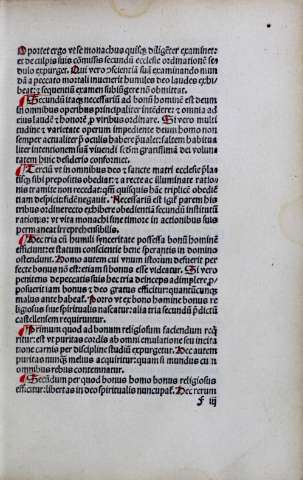 Oportet ergo vt se monachus quisq; diligēter examinet:
et de culpis suis cōmissis secundū ecclesie ordinationē se
dulo expurget. Qui vero ↄscientiā suā examinando mun
dā a peccato mortali inuenerit humiles deo laudes exhi
beat: ⁊ sequentiū examen subiūgere nō obmittat.
Secundū itaq; necessariū ad bonū hominē est deum
in omnibus operibus principaliter intēdere: ⁊ omnia ad
eius laudē ⁊ honorē ꝓ viribus ordinare. Si vero multi
tudine ⁊ varietate operum impediente deum homo non
semper actualiter p̄ oculis habere p̄ualet: saltem habitua
liter intentionem suā viuendi scd̄m gratissimā dei volun
tatem huic desiderio conformet.
Terciū vt in omnibus deo ⁊ sancte matri ecclesie p̄la
tisq; sibi prepositis obediat: ⁊ a recte ac illuminate ratio
nis tramite non recedat: qm̄ quisquis hāc triplicē obediē
tiam despicit fidē negauit. Necessariū est igit̄ parem his
tribus ordine recto exhibere obedientiā secundū institutū
rationis: vt vita monachi sine timore in actionibus suis
permaneat irreprehensibilis.
Hec tria cū humili synceritate possessa bonū hominē
efficiunt: et statum conscientie bene sperantis in domino
ostendunt. Homo autem cui vnum istorum defuerit per
fecte bonus nō est: etiam si bonus esse videatur. Si vero
penitens de peccatis suis hec tria deinceps adimplere ꝓ
posuerit iam bonus ⁊ deo gratus efficitur: quantūcunq;
malus ante habeat̄. Porro vt ex bono homine bonus re
ligiosus siue spiritualis nascatur: alia tria secundū p̄dictū
castellensem requiruntur.
Primum quod ad bonum religiosum faciendum req̄
ritur: est vt puritas cordis ab omni emulatione seu incita
tione carnis per discipline studiū expurgetur. Hec autem
puritas nunq̄ melius acquiritur: quam si mundus cū
omnibus rebus contemnatur.
Secūdum per quod bonus homo bonus religiosus
efficitur: libertas in deo spiritualis nuncupat̄. Hec rerum
f iij